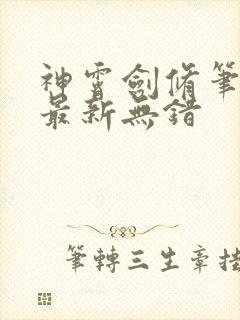 神霄劍脩筆
最新無錯
筆轉三生章掛